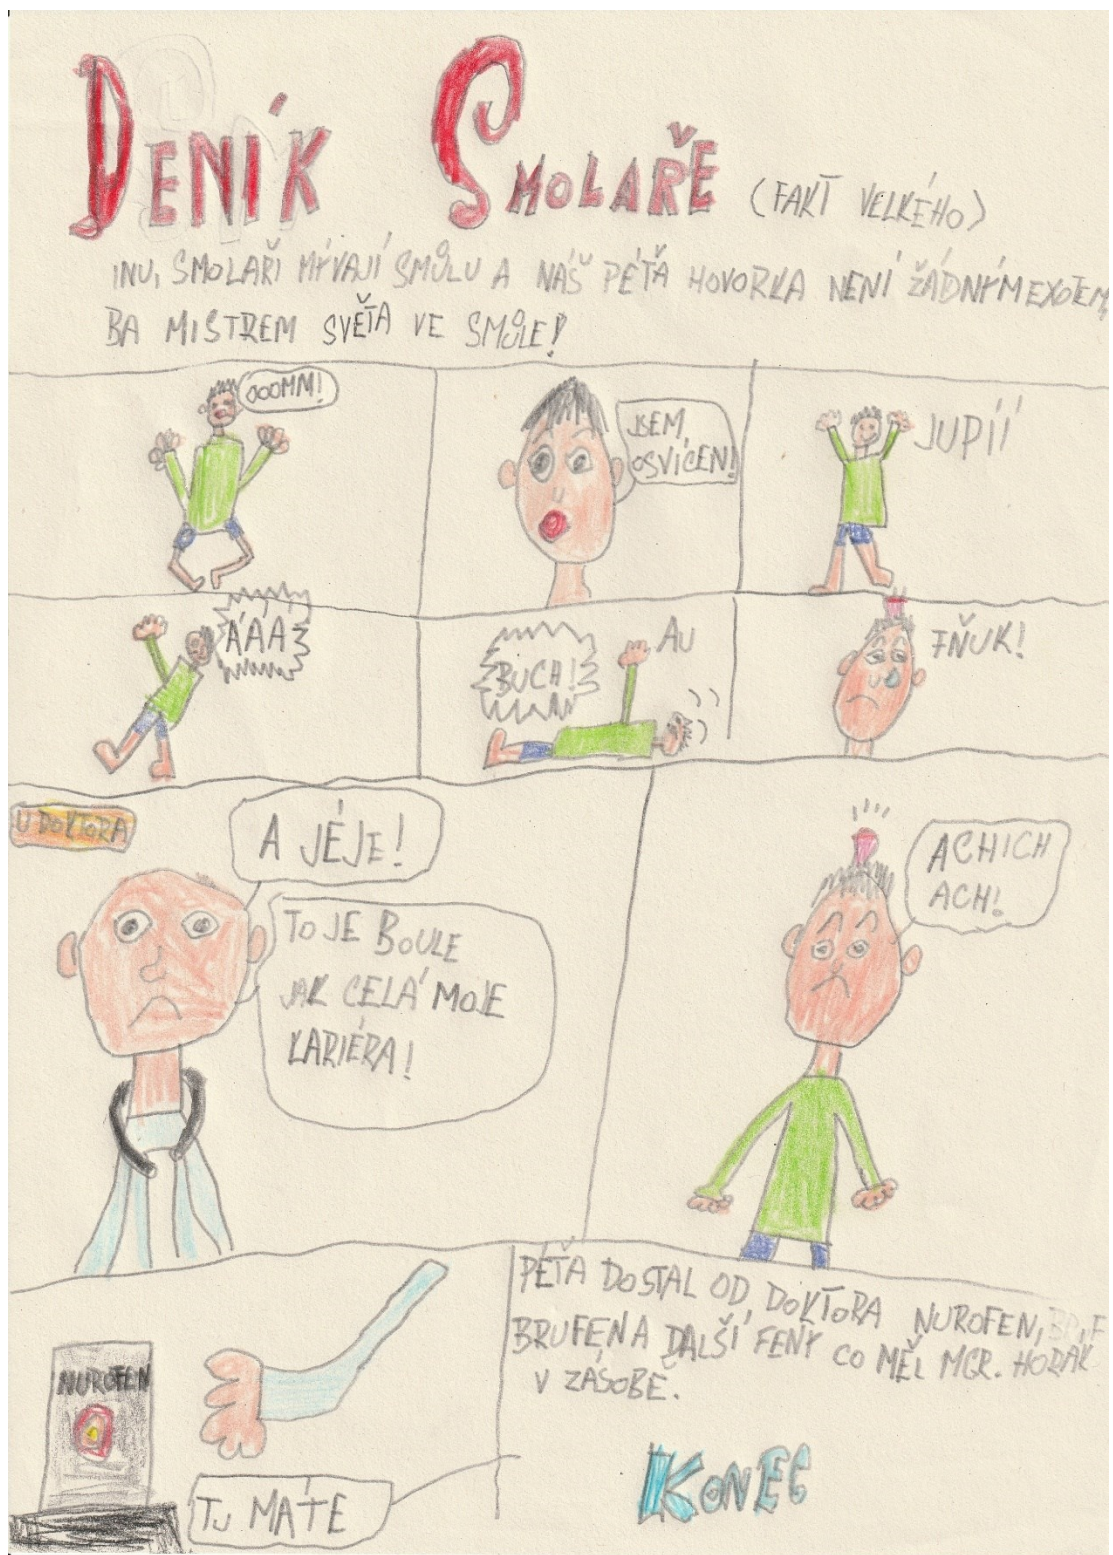 DENÍK SMOLAŘE (FAKT VELKÉHO)
INU, SMOLAŘI MÝVAJÍ SMŮLU A NÁŠ PÉŤA HOVORKA NENÍ ŽÁDNÝM EXOTEM,
BA MISTREM SVĚTA VE SMŮLE!
OOOMM!
JSEM
OSVÍCEN!
JUPÍÍ
ÁÁÁ
BUCH!
AU
FŇUK!
U DOKTORA
A JÉJE!
TO JE BOULE
JAK CELÁ MOJE
KARIÉRA!
ACHICH
ACH!
NUROFEN
TU MÁTE
PÉŤA DOSTAL OD DOKTORA NUROFEN,
BRUFEN A DALŠÍ FENY CO MĚL MGR. HORÁK
V ZÁSOBĚ.
KONEC